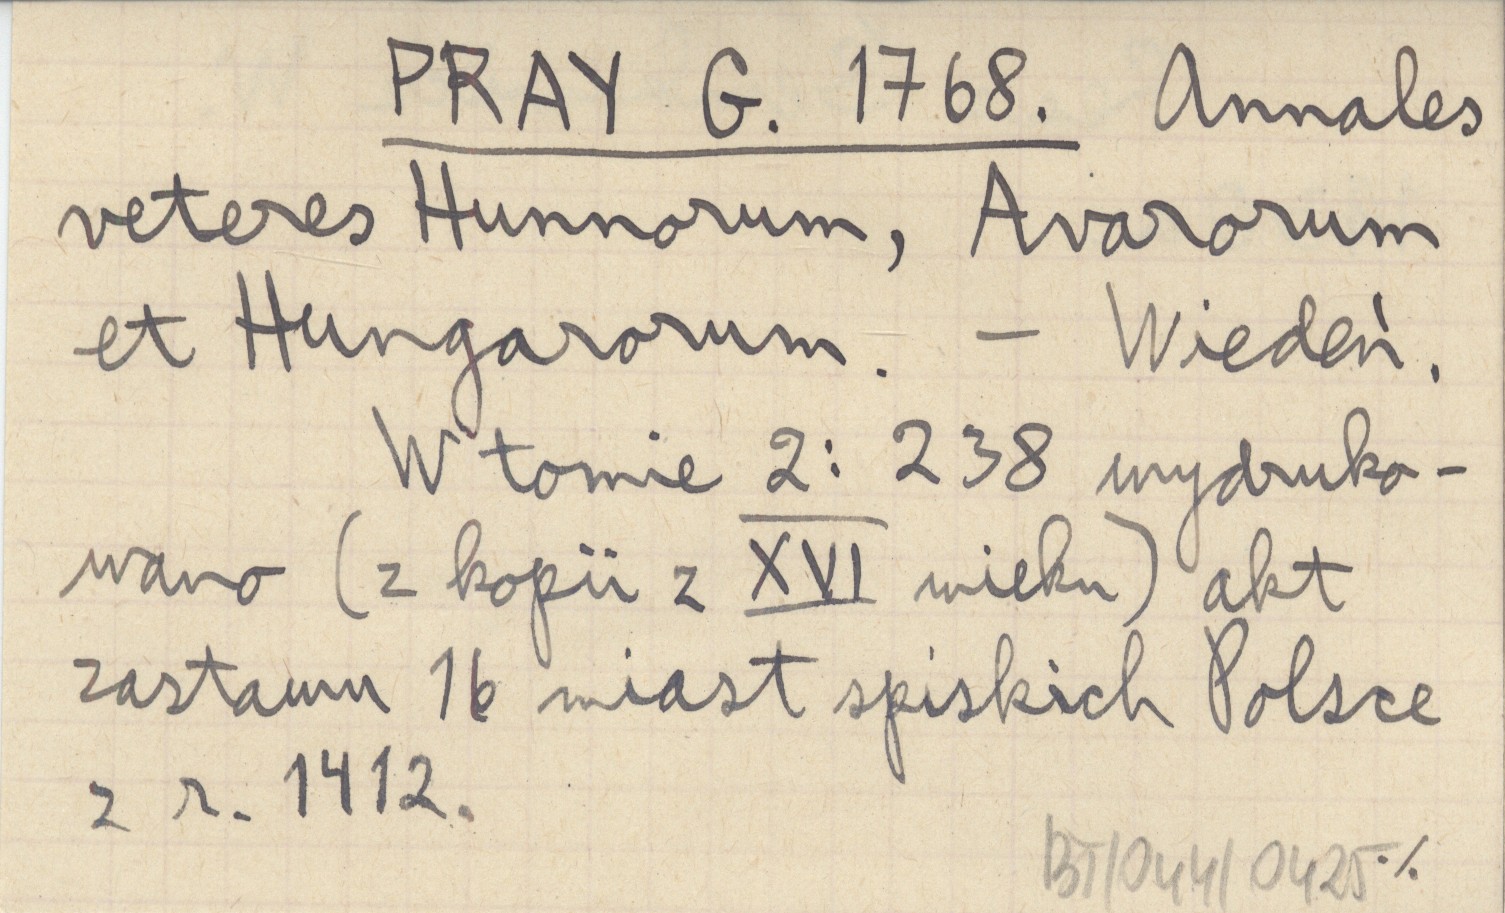 PRAY G. 1768. Annales
veteres Hunnorum, Avarorum
et Hungarorum. – Wiedeń.
W tomie 2: 238 wydruko-
wano (z kopii z XVI wieku) akt
zastawu 16 miast spiskich Polsce
z r. 1412.
BT/044/0425 ./.